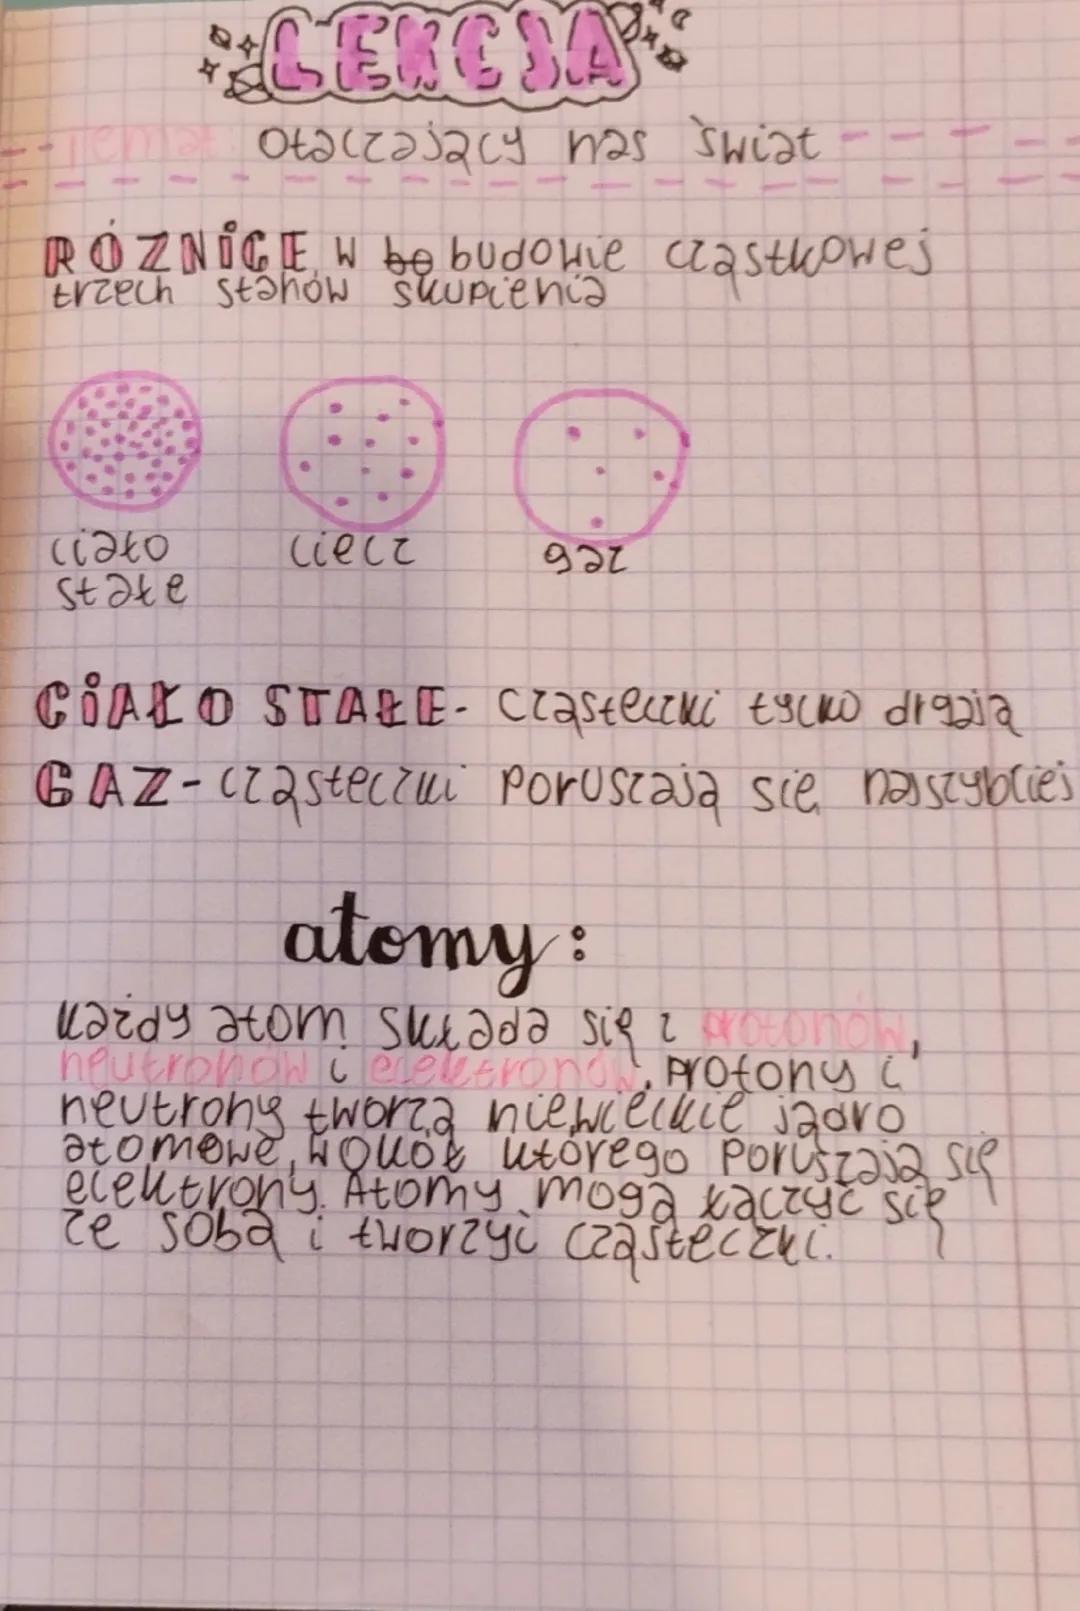 LEKCJA
Temat: Otaczający nas świat
RÓŻNICE W be budowie cząstkowej
trzech stanów skupienia
ciało
stałe
ciecz
gaz
CIAŁO STAŁE- cząsteczki tylko drgają
GAZ- cząsteczki poruszają się najszybciej
atomy:
każdy atom składa się z protonów,
neutronów i elektronów. Protony i
neutrony tworzą niewielkie jądro
atomowe, wokół którego poruszają się
elektrony. Atomy mogą łączyć się
ze sobą i tworzyć cząsteczki.